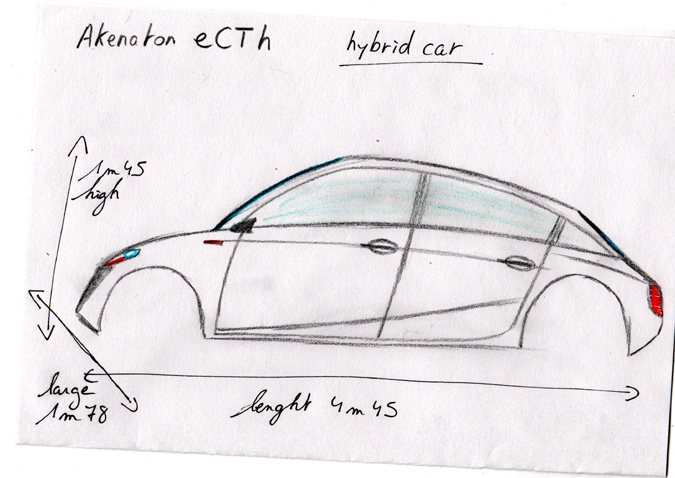 Akenaton eCTh
hybrid car
1m45
high
large
1m78
lenght 4m45